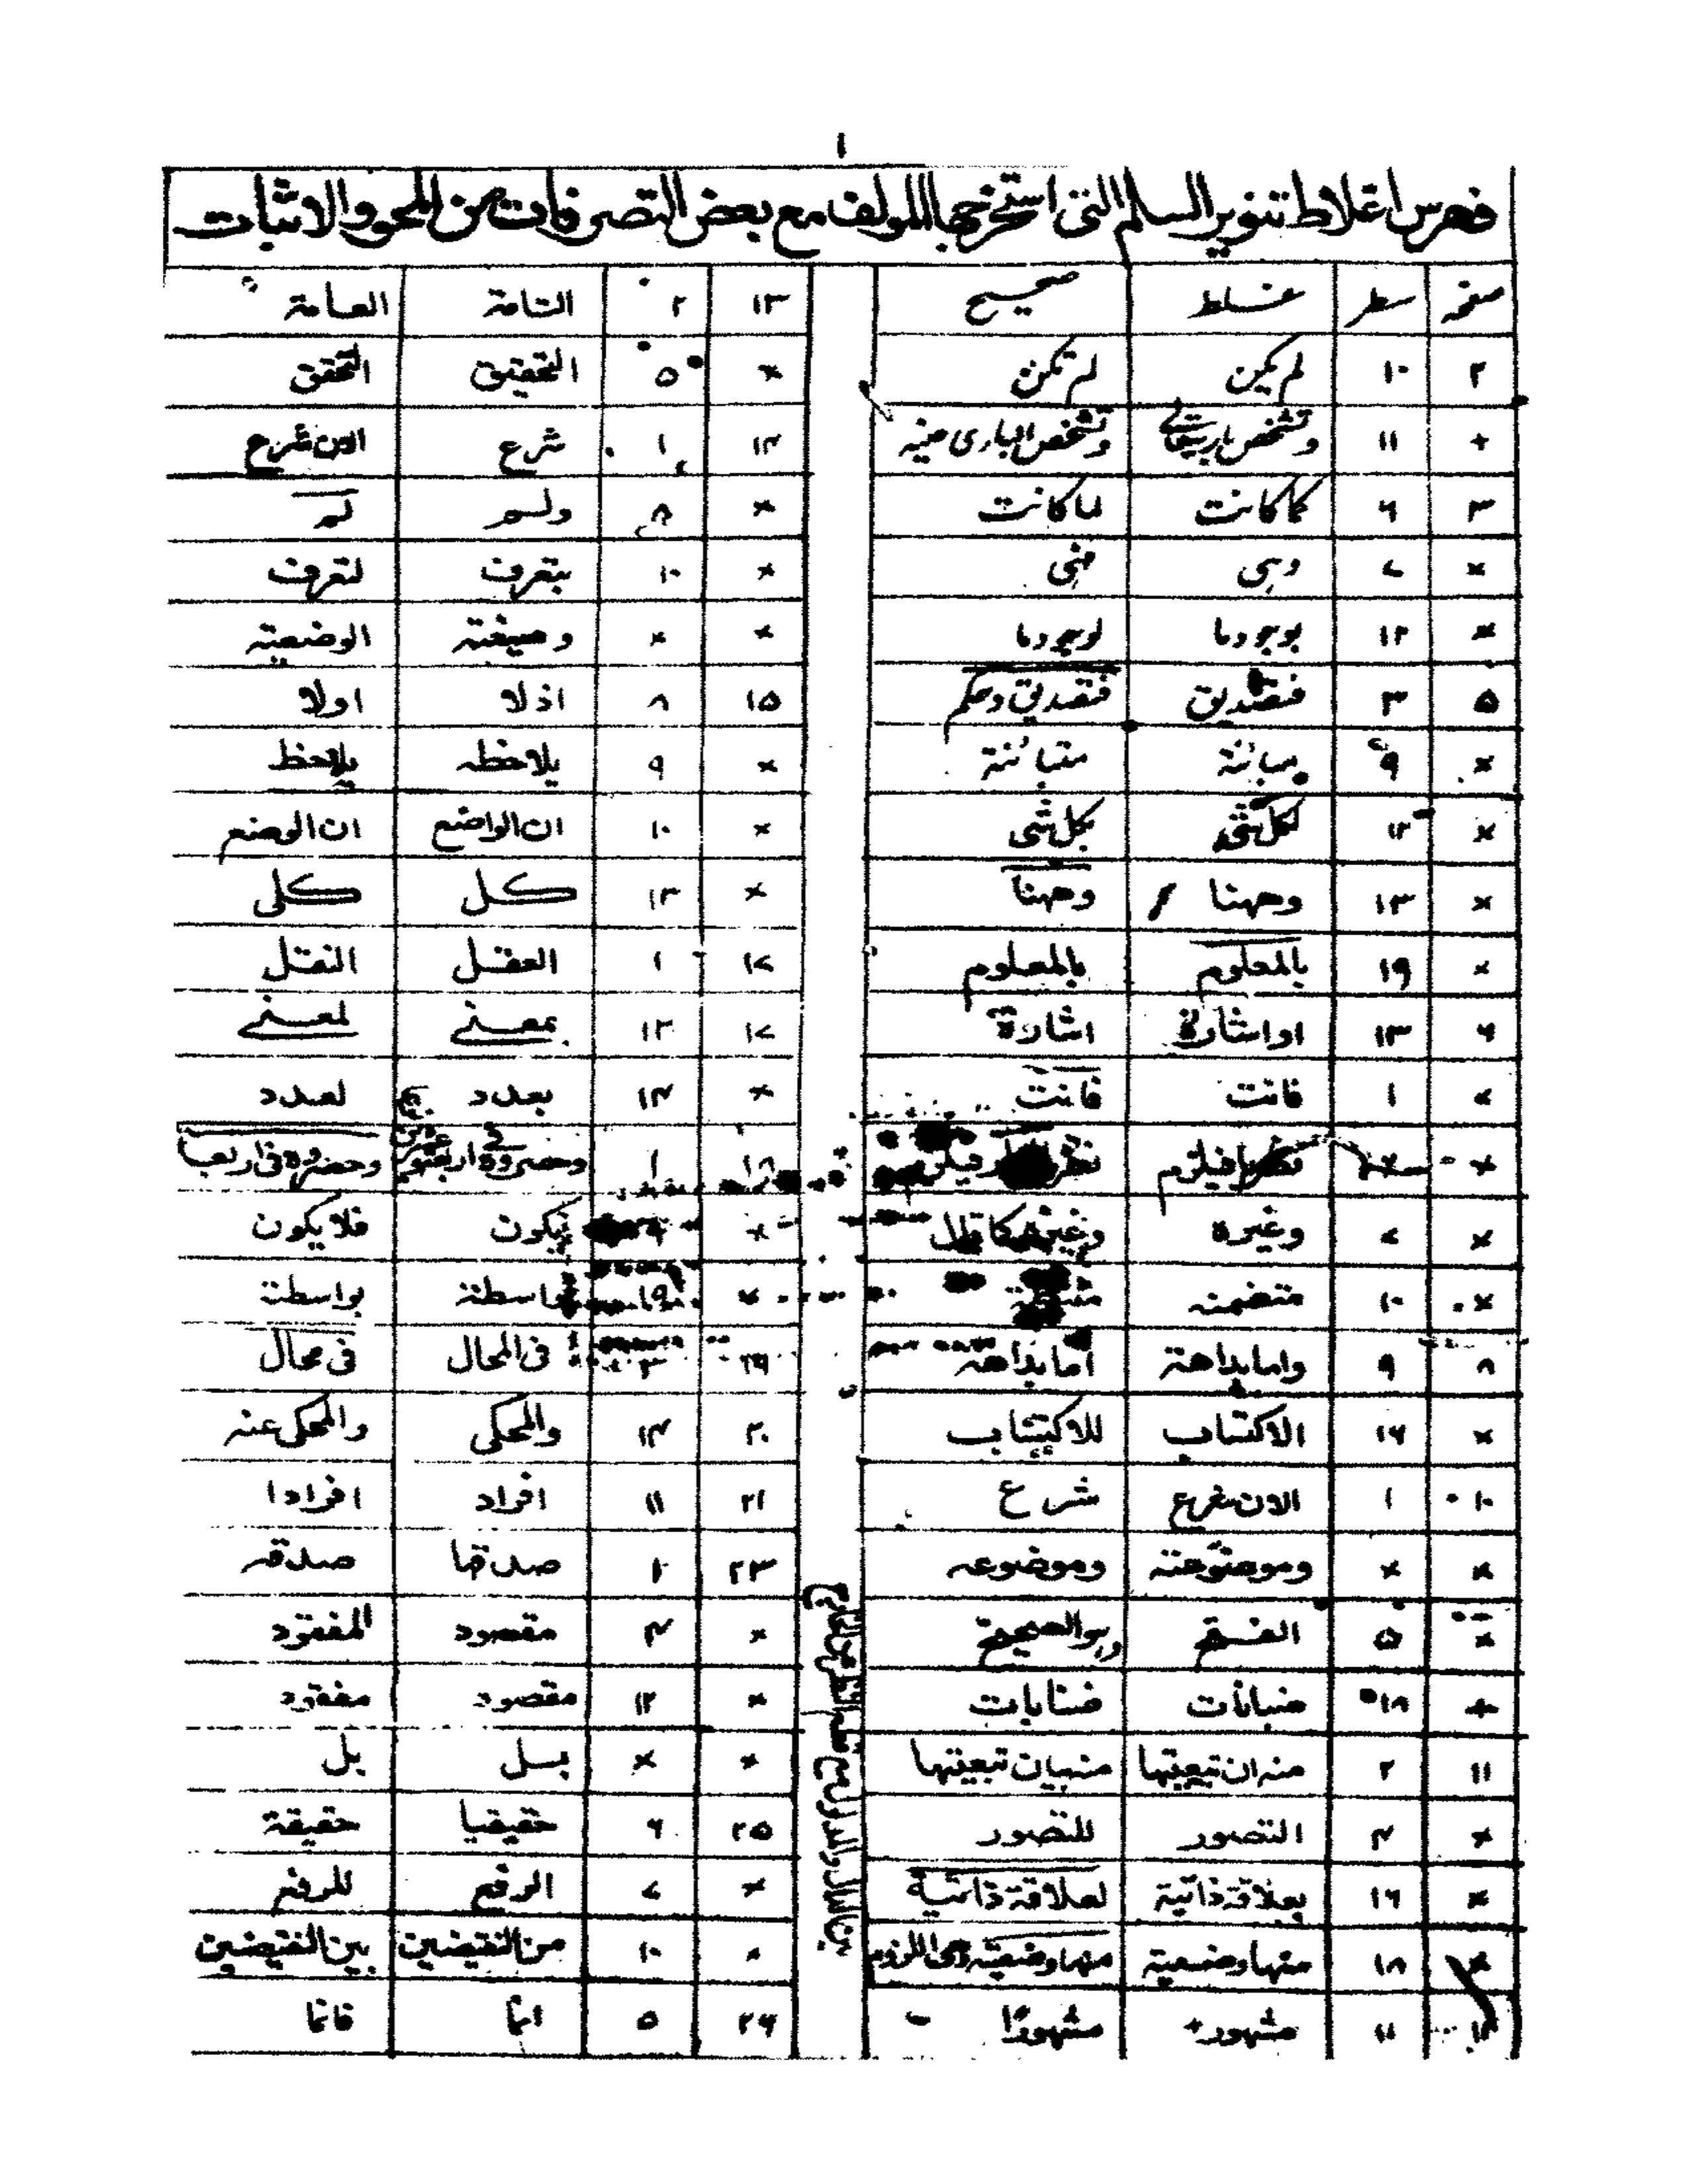 ١
فهرس اغلاط تنوير السلم التى استخرجها المولف مع بعض التصرفات من المحو والاثبات
صفحہ سطر غلط صحیح
٢ ١٠ لم یکن لم تکن
+ ١١ وتشخص وتشخص الباری عنیه
٣ ٦ کما کانت لما کانت
× ٧ وہی فہی
× ١٢ بوجودہا لوجودہا
۵ ٣ فتصدیق فتصدیق وحکم
× ٩ مبائنة متبائنة
× ١٢ لکل شئ بکل شئ
× ١٣ وههنا وههنا
× ١٩ بالمعلوم بالمعلوم
٦ ١٣ او اشارة اشارة
٧ ١ فانت فانت
× فیلزم
× ٧ وغیره وغیره کما قال
× ١٠ متضمنه
٨ ٩ واما بداهة اما بداهة
× ١٦ الاکتساب للاکتساب
١٠ ١ الان شرع شرع
× × وموضوعته وموضوعه
× ۵ وہو الصحیح
+ ١٨ ضبابات
١١ ٢ منه ان تبعیتها منہیات تبعیتها
× ۴ التصور للتصور
× ١٦ بعلاقة ذاتیة لعلاقة ذاتیة
× ١٨ منها وضعیة منها وضعیة وہی اللزوم
١١ مشهور مشهورًا
١٣ ٢ التامة العامة
× ۵ التحقیق التحقق
١۴ ١ شرع الان شرع
× ٨ ولم لم
× ١٠ بتعرف لتعرف
× × وصیغته الوضعیته
١۵ ٨ اذلا اولا
× ٩ یلاحظه یلاحظ
× ١٠ ان الواضع ان الوضع
× ١٣ کل کلی
١٧ ١ العقل النقل
١٧ ١٢ بمعنے لمعنے
× ١۴ بعدد لعدد
١٨ ١ وحصروه فی اربعا
× یکون فلا یکون
× ٩ بواسطة
١٩ ٣ فی المحال فی محال
٢٠ ١۴ والمحکی والمحکی عنه
٢١ ١١ افراد افرادا
٢٣ ١ صدقها صدقه
× ۴ مقصود المفقود
× ١٢ مقصود مفقود
× × بسل بل
٢۵ ٦ حقیقیا حقیقة
× ٧ الرفع للرفع
× ١٠ من النقیضین بین النقیضین
٢٦ ۵ انما فانما